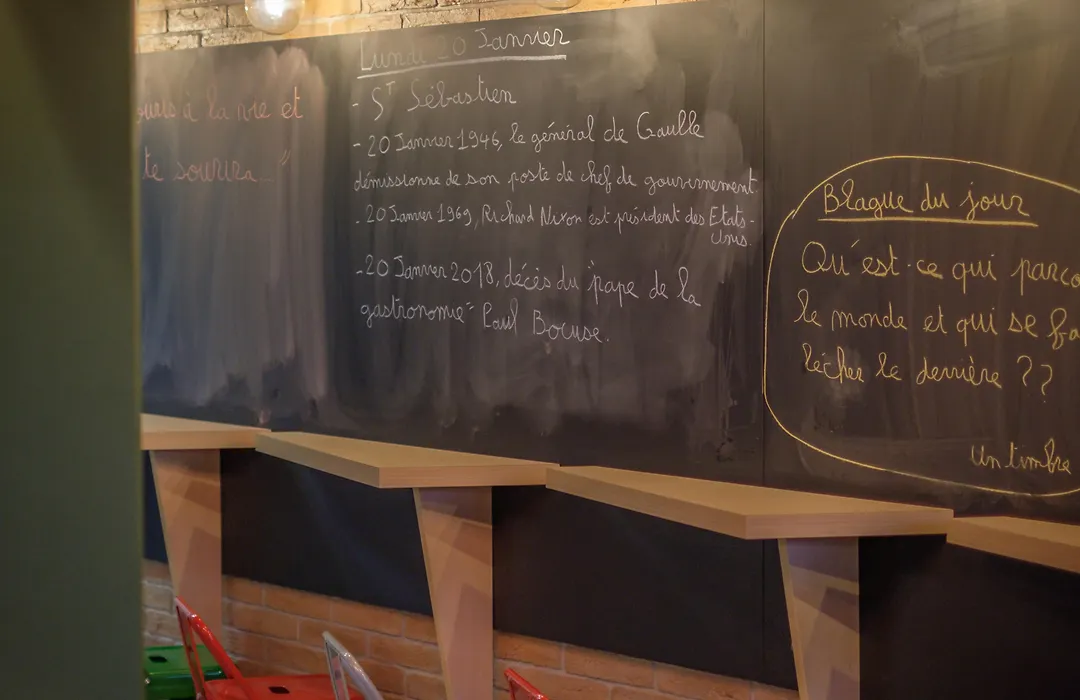 à la vie et
te sourira..."
Lundi 20 Janvier
- ST Sébastien
- 20 Janvier 1946, le général de Gaulle
démissionne de son poste de chef de gouvernement
- 20 Janvier 1969, Richard Nixon est président des Etats-
Unis.
- 20 Janvier 2018, décès du "pape de la
gastronomie" Paul Bocuse.
Blague du jour
Qu'est-ce qui parco
le monde et qui se fa
lécher le derrière ??
Un timbre